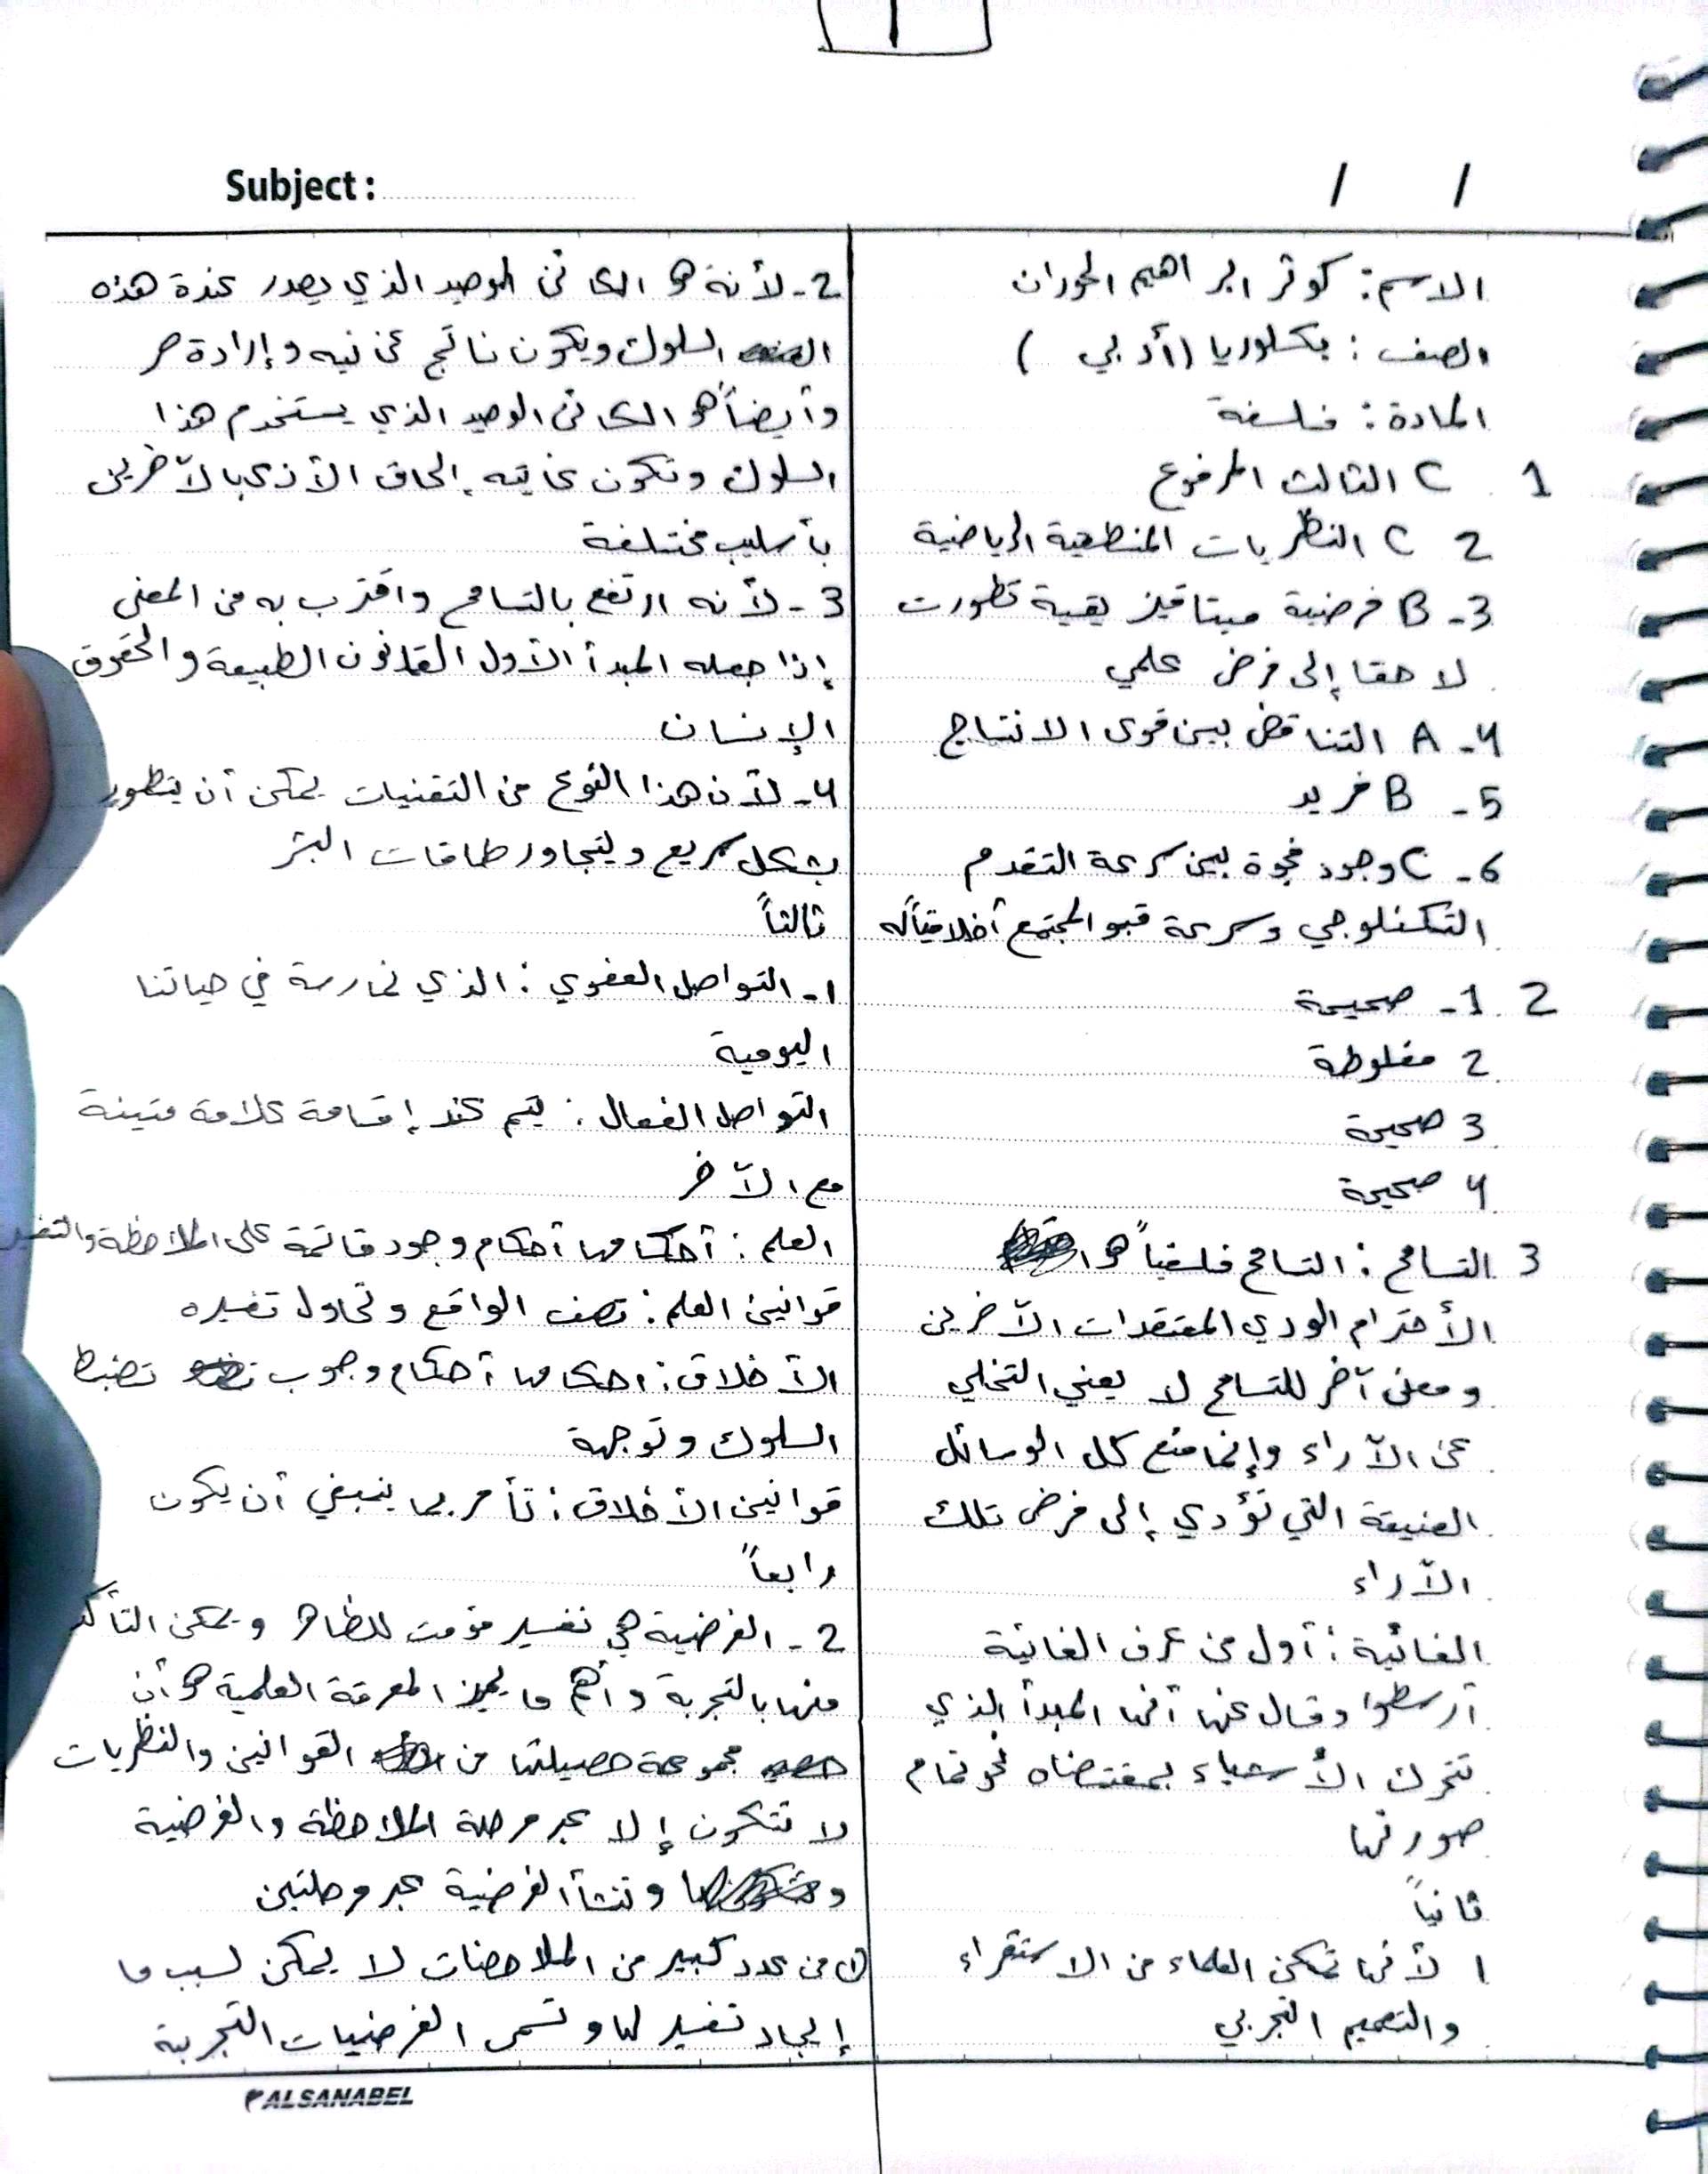 1
Subject:
/ /
الاسم: كوثر ابراهيم الحوران
الصف: بكلوريا (أدبي)
المادة: فلسفة
1 C الثالث المرفوع
2 C النظريات المنطقية الرياضية
3- B فرضية ميتافيزيقية تطورت
لاحقا إلى فرض علمي
4- A التناقض بين قوى الانتاج
5- B فريد
6- C وجود فجوة بين سرعة التقدم
التكنلوجي وسرعة قبو المجتمع أخلاقياً له
2 1- صحيحة
2 مغلوطة
3 صحيحة
4 صحيحة
3 التسامح: التسامح فلسفياً هو
الأحترام الودي المعتقدات الآخرين
ومعنى آخر للتسامح لا يعني التخلي
عن الآراء وإنما منع كل الوسائل
العنيفة التي تؤدي إلى فرض تلك
الآراء
الغائية: أول من عرف الغائية
أرسطوا وقال عنها أنها المبدأ الذي
تتحرك الأشياء بمقتضاه نحو تمام
صورتها
ثانياً
1 لأنها تمكن العلماء من الاستقراء
والتعميم التجربي
2- لأنة هو الكائن الوحيد الذي يصدر عندة هذه
السلوك ويكون ناتج عن نيه وإرادة حر
وأيضاً هو الكائن الوحيد الذي يستخدم هذا
السلوك وتكون غايته إلحاق الأذى بالآخرين
بأساليب مختلفة
3- لأنه ارتفع بالتسامح واقترب به من المعنى
إذا جعله المبدأ الأول القانون الطبيعة والحقوق
الإنسان
4- لأن هذا النوع من التقنيات يمكن أن يتطور
بشكل سريع ويتجاوز طاقات البشر
ثالثاً
1- التواصل العفوي: الذي نمارسة في حياتنا
اليومية
التواصل الفعال: يتم عند إقامة علامة متينة
مع الآخر
العلم: أحكامها أحكام وجود قائمة على الملاحظة والتفسير
قوانين العلم: تصف الواقع وتحاول تفسيره
الأخلاق: احكامها أحكام وجوب تضبط
السلوك وتوجهة
قوانين الأخلاق: تأمر بما ينبغي أن يكون
رابعاً
2- الفرضية هي تفسير مؤقت للظاهر ويمكن التأكد
منها بالتجربة وأهم ما يميز المعرفة العلمية هو أن
مجموعة حصيلتها من القوانين والنظريات
لا تتكون إلا عبر مرحلة الملاحظة والفرضية
وتنشأ الفرضية عبر مرحلتين
① من عدد كبير من الملاحضات لا يمكن لسبب ما
إيجاد تفسير لها وتسمى الفرضيات التجربية
ALSANABEL